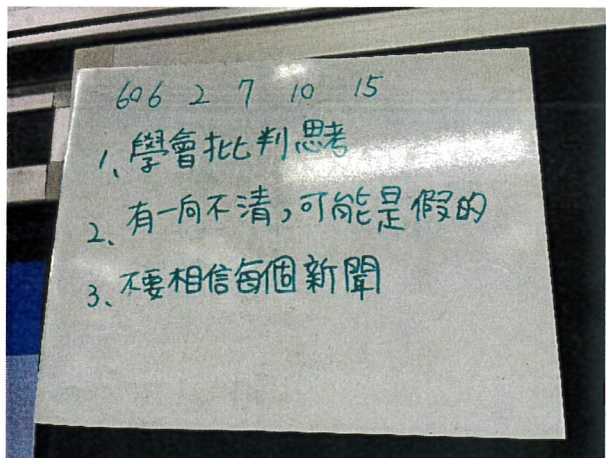 606 2 7 10 15
1、學會批判思考
2、有一向不清，可能是假的
3、不要相信每個新聞